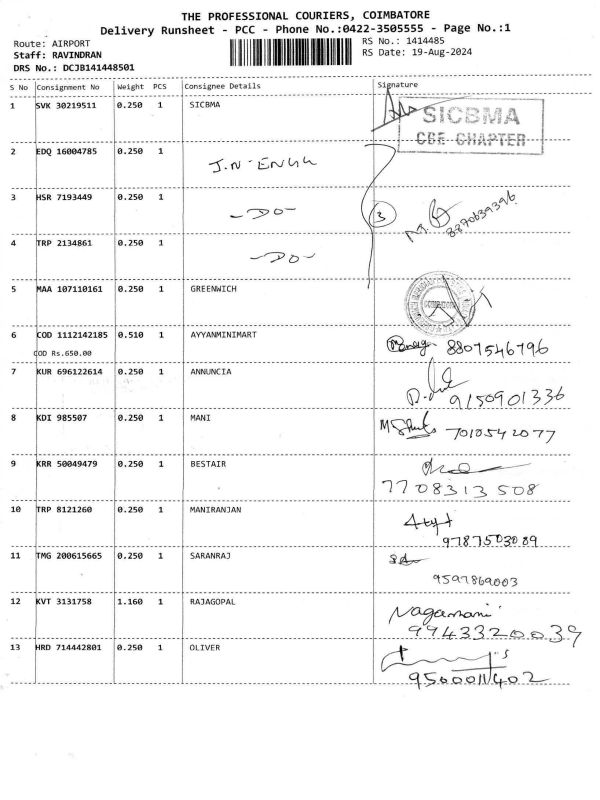 THE PROFESSIONAL COURIERS, COIMBATORE
Delivery Runsheet - PCC - Phone No.:0422-3505555 - Page No.:1
Route: AIRPORT
RS No.: 1414485
Staff: RAVINDRAN
RS Date: 19-Aug-2024
DRS No.: DCJB141448501
S No Consignment No Weight PCS Consignee Details Signature
1 SVK 30219511 0.250 1 SICBMA
SICBMA
CBE CHAPTER
2 EDQ 16004785 0.250 1 J.N-ENGG
3 HSR 7193449 0.250 1 -DO- 3 8870639396
4 TRP 2134861 0.250 1 -DO-
5 MAA 107110161 0.250 1 GREENWICH
6 COD 1112142185 0.510 1 AYYANMINIMART 8807546796
COD Rs.650.00
7 KUR 696122614 0.250 1 ANNUNCIA
9150901336
8 KDI 985507 0.250 1 MANI 7010542077
9 KRR 50049479 0.250 1 BESTAIR
7708313508
10 TRP 8121260 0.250 1 MANIRANJAN
9787503089
11 TMG 200615665 0.250 1 SARANRAJ
9597869003
12 KVT 3131758 1.160 1 RAJAGOPAL Nagamani
9943320039
13 HRD 714442801 0.250 1 OLIVER
9500011402